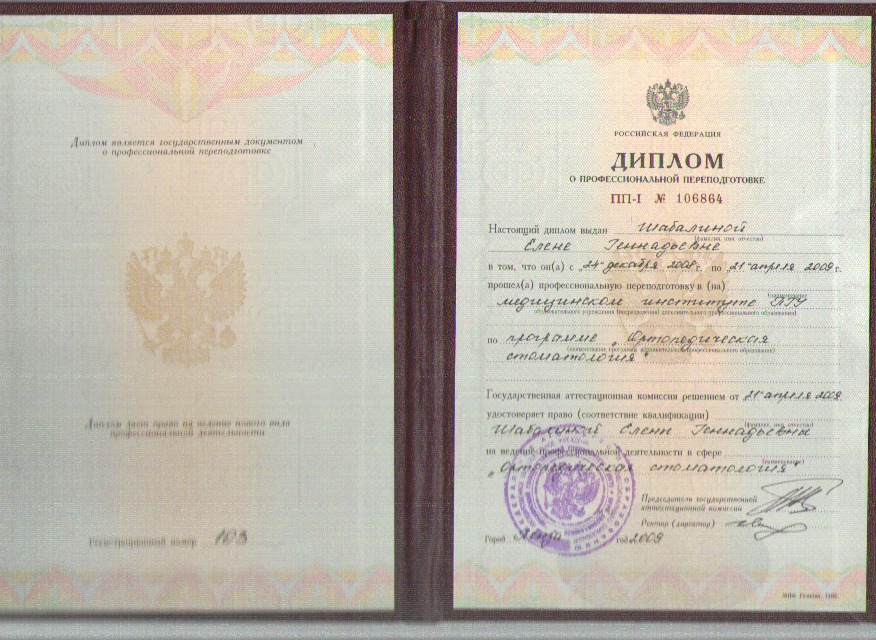 Диплом является государственным документом
о профессиональной переподготовке
Диплом дает право на ведение нового вида
профессиональной деятельности
Регистрационный номер 103
РОССИЙСКАЯ ФЕДЕРАЦИЯ
ДИПЛОМ
О ПРОФЕССИОНАЛЬНОЙ ПЕРЕПОДГОТОВКЕ
ПП-I № 106864
Настоящий диплом выдан Шабалиной
(фамилия, имя, отчество)
Елене Геннадьевне
в том, что он(а) с 24 декабря 2008 г. по 21 апреля 2009 г.
прошел(а) профессиональную переподготовку в (на)
(наименование)
медицинском институте ПГУ
образовательного учреждения (подразделения) дополнительного профессионального образования)
по программе „Ортопедическая
(наименование программы дополнительного профессионального образования)
стоматология"
Государственная аттестационная комиссия решением от 21 апреля 2009
удостоверяет право (соответствие квалификации)
(фамилия, имя, отчество)
Шабалиной Елены Геннадьевны
на ведение профессиональной деятельности в сфере
(наименование)
„Ортопедическая стоматология"
Председатель государственной
аттестационной комиссии
Ректор (директор)
Город Пенза год 2009